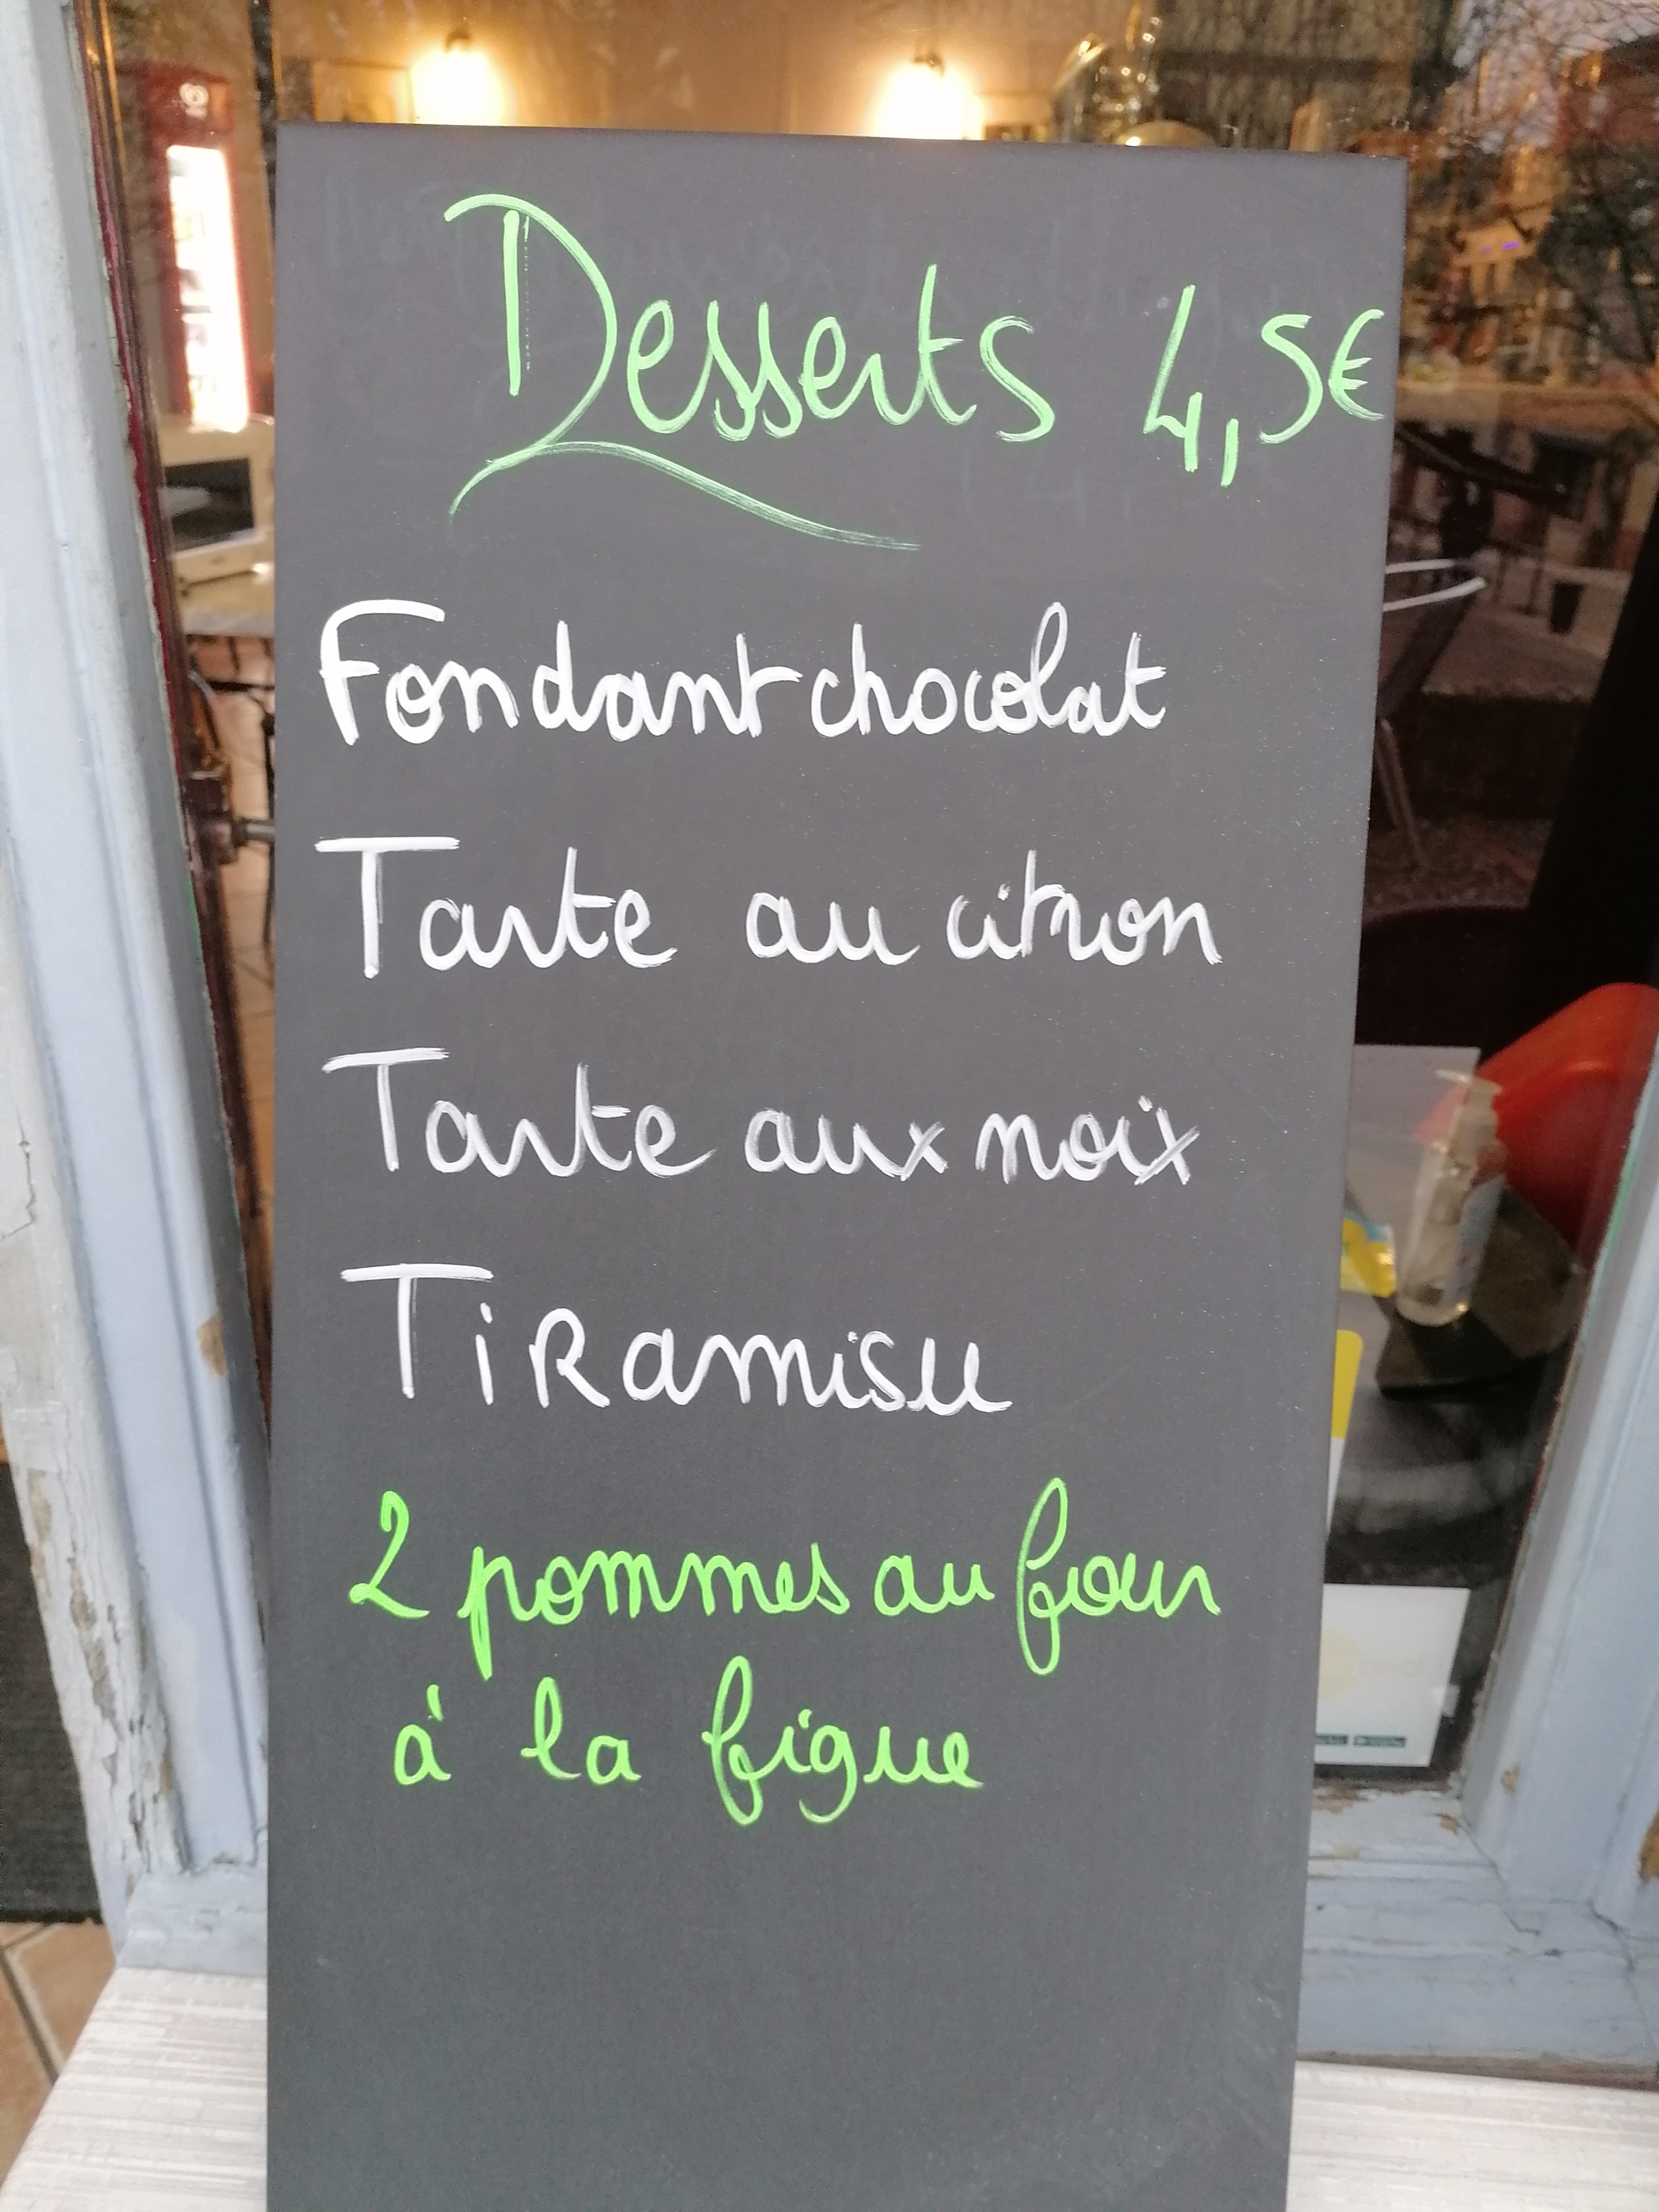 Desserts 4,5€
Fondant chocolat
Tarte au citron
Tarte aux noix
Tiramisu
2 pommes au four
à la figue